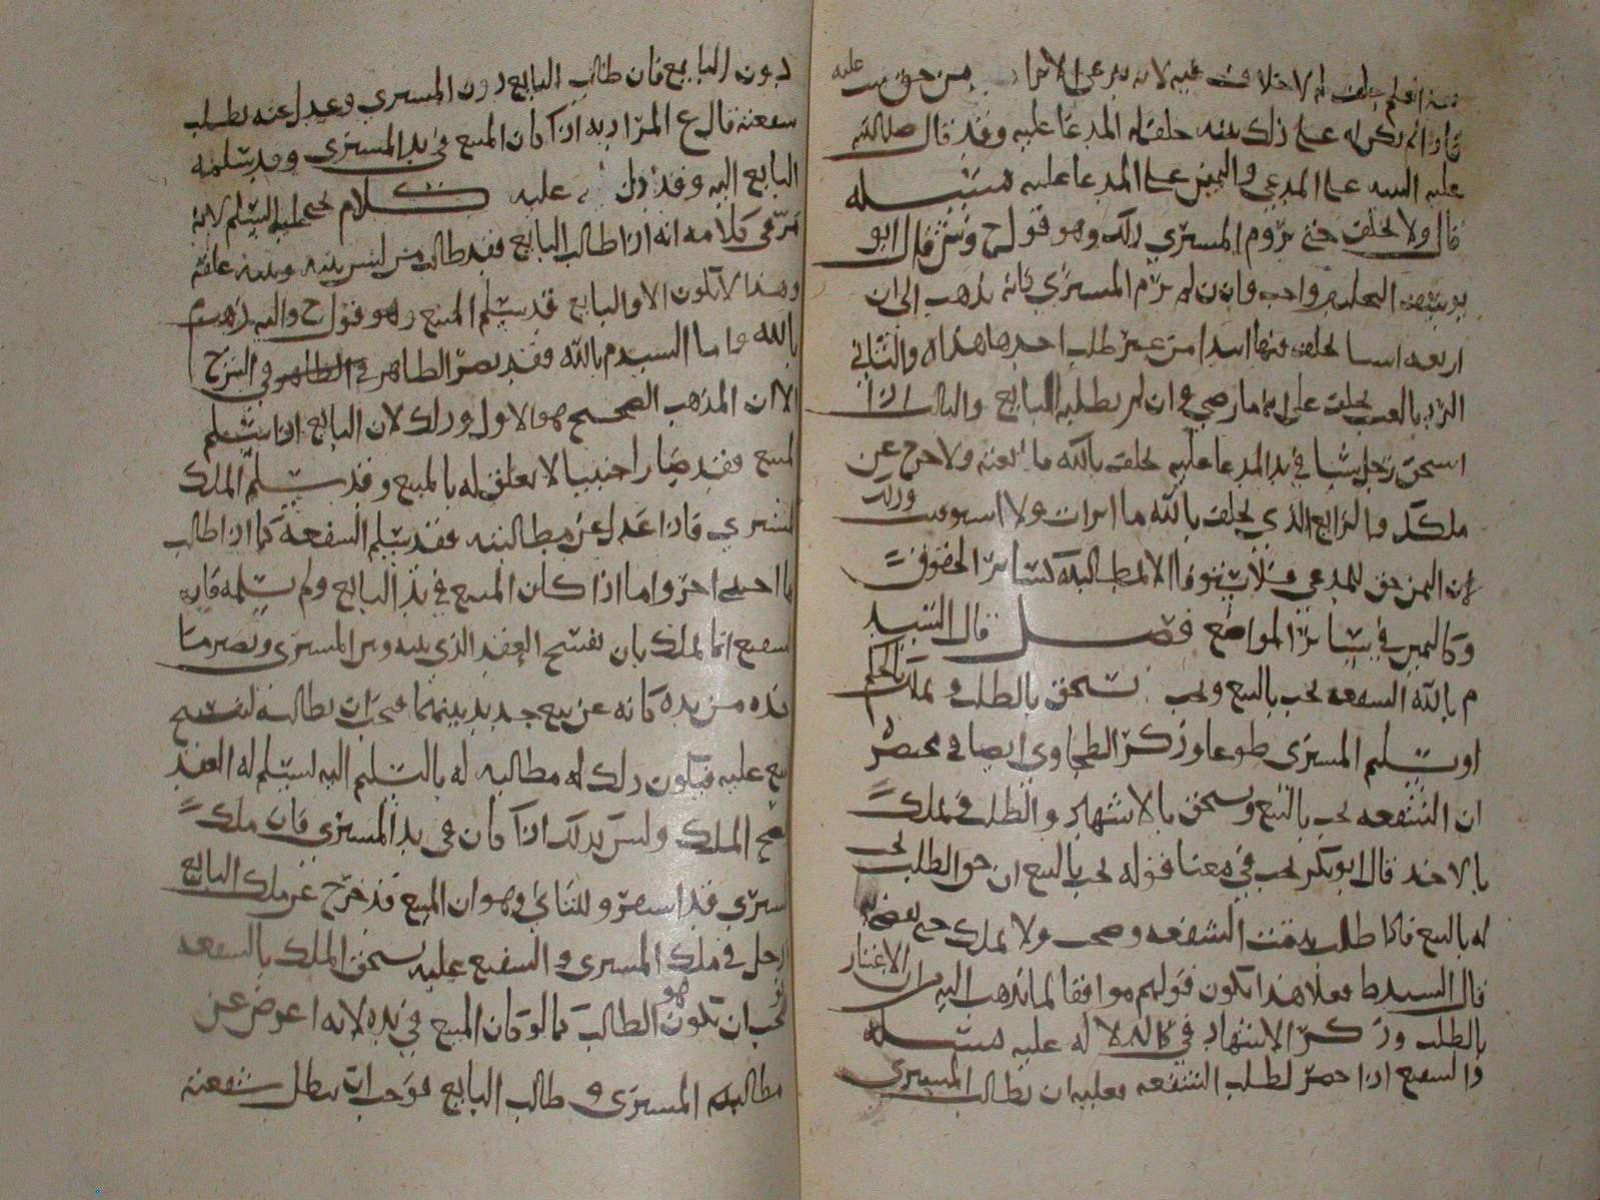 لانه يدعي الابرا من حق ثبت عليه
فاذا لم يكن له على ذلك بينه حلف له المدعا عليه وقد قال صلى الله
عليه البينه على المدعي واليمين على المدعا عليه مسئله
قال ولا يحلف حتى يروم المشتري ذلك وهو قول ح وش قال ابو
يوسف التحليف واجب وان لم يرم المشتري كانه يذهب الى ان
اربعه اشيا يحلف فيها ابتدا من غير طلب احدها هذا والثاني
الرد بالعيب يحلف على انه ما رضي وان لم يطلبه البايع والثالث اذا
استحق رجل شيا في يد المدعا عليه يحلف بالله ما بعته ولا خرج عن
ملكك والرابع الذي يحلف بالله ما ابرات ولا استوفيت وذلك
لان اليمين حق للمدعي فلا يستوفا الا بمطالبته كسائر الحقوق
وكاليمين في سائر المواضع فصل قال السيد
م بالله الشفعه تجب بالبيع وتستحق بالطلب وتملك بالحكم
او بتسليم المشتري طوعا وذكر الطحاوي ايضا في مختصره
ان الشفعه تجب بالبيع وتستحق بالاشهاد والطلب وتملك
بالاخذ قال ابو بكر في معنا قوله تجب بالبيع ان حق الطلب يجب
له بالبيع فاذا طلب ثبتت الشفعه وصحت ولا تملك حتى يقضى له
قال السيد ط فعلا هذا يكون قولهم موافقا لما نذهب اليه من الاعتبار
بالطلب وذكر الاشهاد في كلامه لا له عليه مسئله
والشفيع اذا حضر لطلب الشفعه فعليه ان يطالب المشتري
دون البايع فان طالب البايع دون المشتري وعدل عنه بطلت
شفعته قال ع المراد به اذا كان المبيع في يد المشتري وقد سلمه
البايع اليه وقد دل عليه كلام يحيى عليه السلم لانه
مر في كلامه انه اذا طالب البايع فقد طالب من ليس بينه وبينه علقه
وهذا لا يكون الا والبايع قد سلم المبيع وهو قول ح واليه ذهب م
بالله واما السيد م بالله فقد نصر الظاهر في الشرح
الا ان المذهب الصحيح هو الاول وذلك لان البايع اذا سلم
المبيع فقد صار اجنبيا لا تعلق له بالمبيع وقد سلم الملك
المشتري فاذا عدل عن مطالبته فقد سلم الشفعة كما اذا طالب
اجنبيا اخر واما اذا كان المبيع في يد البايع ولم يسلمه فان
الشفيع انما يملك بان يفسخ العقد الذي بينه وبين المشتري ويصير ما
اخذه من يده كانه عن بيع جديد بينهما فيجب ان يطالبه ليفسخ
البيع عليه فيكون ذلك له مطالبه له بالتسليم اليه ليسلم له العقد
ويصح الملك وليس كذلك اذا كان في يد المشتري فان ملك
المشتري قد استقر وللثاني وهو ان المبيع قد خرج عن ملك البايع
ودخل في ملك المشتري والشفيع عليه يستحق الملك بالشفعه
فوجب ان يكون هو الطالب كما لو كان المبيع في يده لانه اعرض عن
مطالبه المشتري وطالب البايع فوجب ان تبطل شفعته